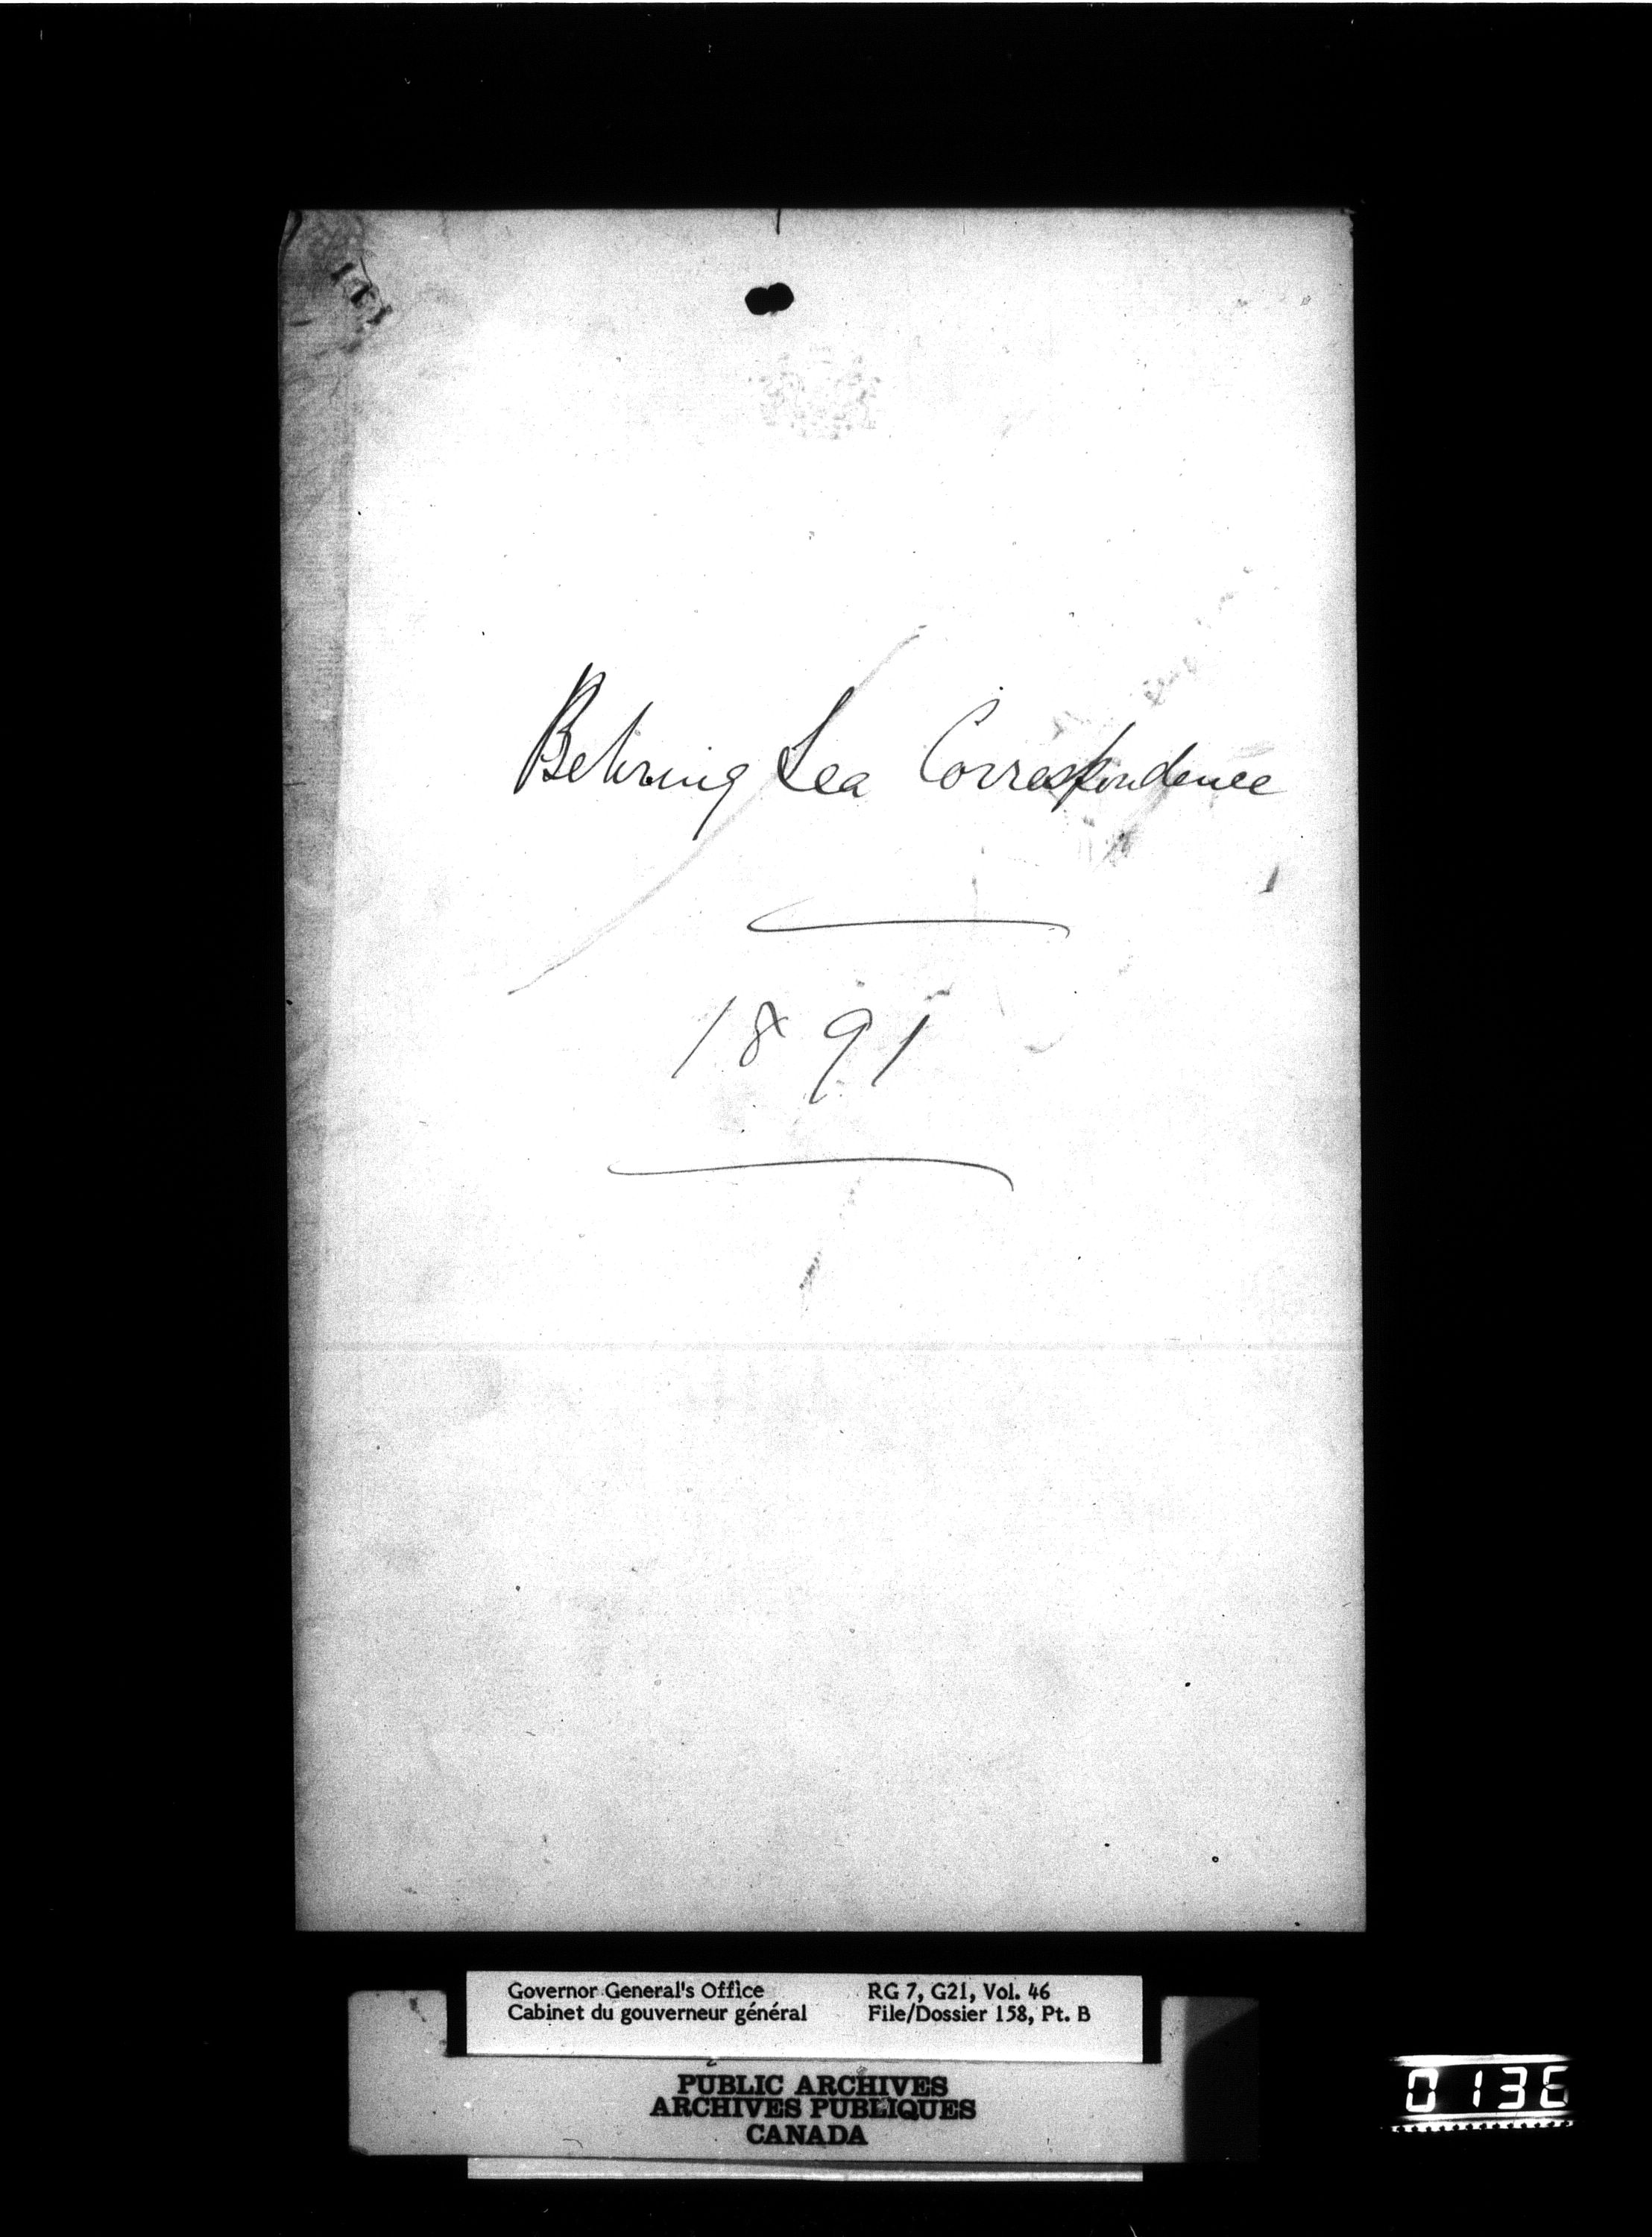 Behring Sea Correspondence
1891
Governor General's Office
Cabinet du gouverneur général
RG 7, G21, Vol. 46
File/Dossier 158, Pt. B
PUBLIC ARCHIVES
ARCHIVES PUBLIQUES
CANADA